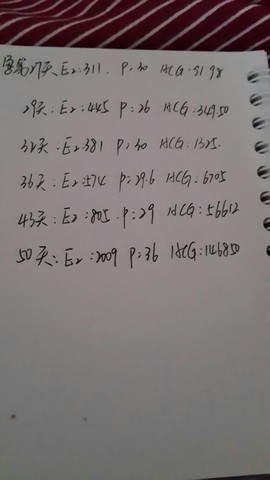 第27天 E2:311. P:30 HCG:91.98
29天:E2:445 P:26 HCG:349.50
32天.E2:381 P:30 HCG.1325.
36天:E2:574 P:29.6 HCG.6705
43天:E2:805.P:29 HCG:56612
50天:E2:2009 P:36 HCG:146850